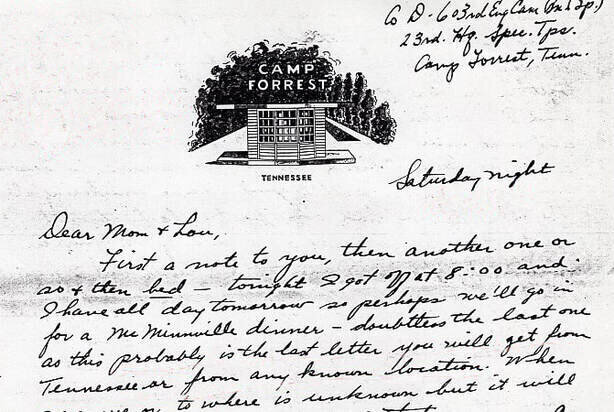 Co D - 603rd Eng Cam Bn (Sp.)
23rd. Hq. Spec. Tps.
Camp Forrest, Tenn.
CAMP
FORREST
TENNESSEE
Saturday night
Dear Mom & Lou,
First a note to you, then another one or
so & then bed - tonight I got off at 8:00 and
I have all day tomorrow so perhaps we'll go in
for a McMinnville dinner - doubtless the last one
as this probably is the last letter you will get from
Tennessee or from any known location. When
to where is unknown but it will